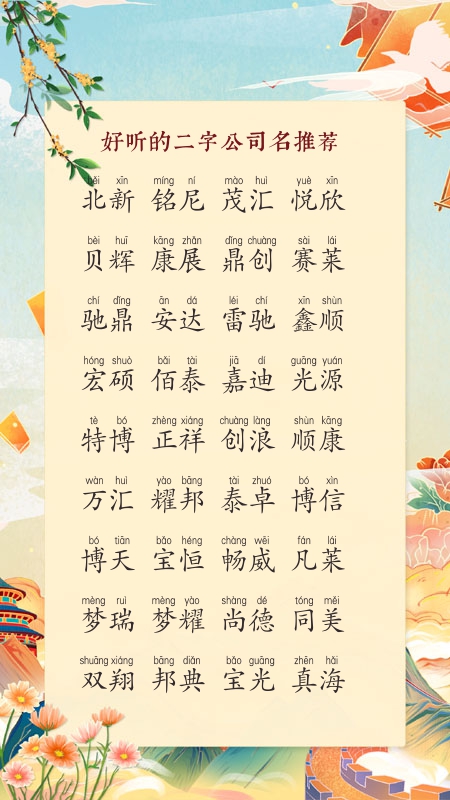 好听的二字公司名推荐
běi xīn míng ní mào huì yuè xīn
北新 铭尼 茂汇 悦欣
bèi huī kāng zhǎn dǐng chuàng sài lái
贝辉 康展 鼎创 赛莱
chí dǐng ān dá léi chí xīn shùn
驰鼎 安达 雷驰 鑫顺
hóng shuò bǎi tài jiā dí guāng yuán
宏硕 佰泰 嘉迪 光源
tè bó zhèng xiáng chuàng làng shùn kāng
特博 正祥 创浪 顺康
wàn huì yào bāng tài zhuó bó xìn
万汇 耀邦 泰卓 博信
bó tiān bǎo héng chàng wēi fán lái
博天 宝恒 畅威 凡莱
mèng ruì mèng yào shàng dé tóng měi
梦瑞 梦耀 尚德 同美
shuāng xiáng bāng diǎn bǎo guāng zhēn hǎi
双翔 邦典 宝光 真海